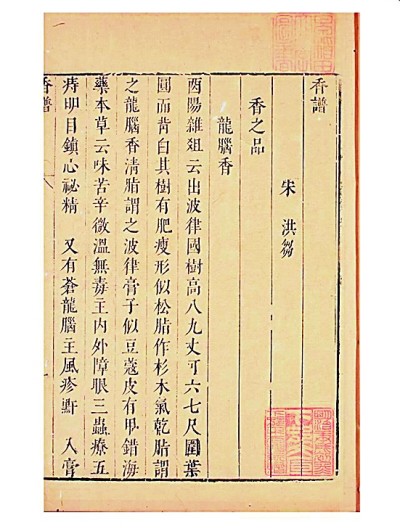 香譜
宋 洪芻
香之品
龍腦香
酉陽雜俎云出波律國樹高八九丈可六七尺圍葉
圓而背白其樹有肥瘦形似松脂作杉木氣乾脂謂
之龍腦香清脂謂之波律膏子似豆蔻皮有甲錯海
藥本草云味苦辛微溫無毒主內外障眼三蟲療五
痔明目鎮心祕精 又有蒼龍腦主風疹䵟 入膏
香譜